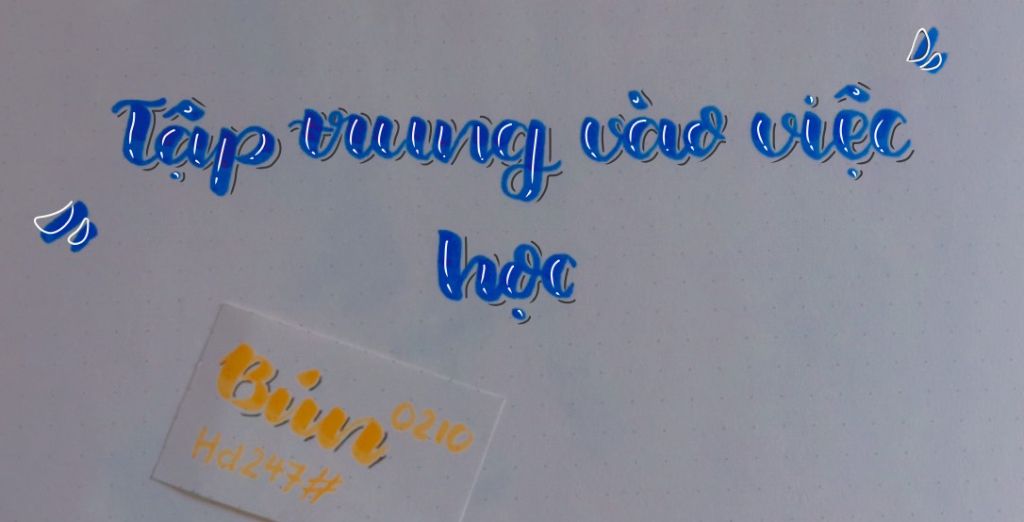 Tập trung vào việc
học
Bún 0210
Hd247#